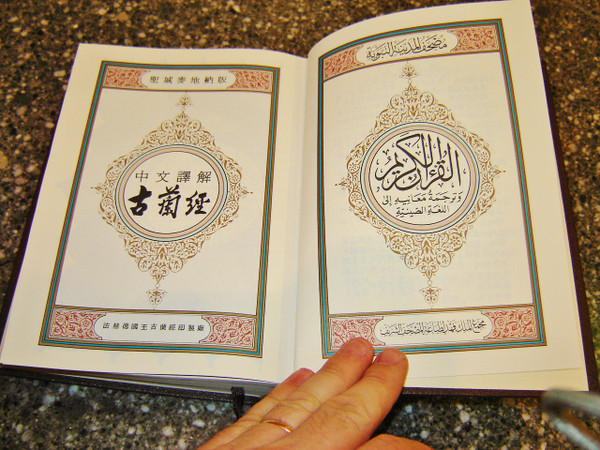 聖城麥地納版
中文譯解
古蘭經
法赫德國王古蘭經印製廠
مصحف المدينة النبوية
القرآن الكريم
وترجمة معانيه إلى
اللغة الصينية
مجمع الملك فهد لطباعة المصحف الشريف